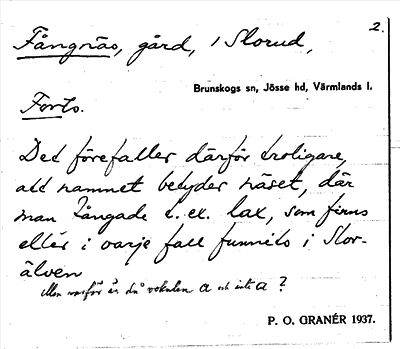 2.
Fångnäs, gård, i Slorud,
Brunskogs sn, Jösse hd, Värmlands l.
Forts.
Det förefaller därför troligare,
att namnet betyder näset, där
man fångade t. ex. lax, som finns
eller i varje fall funnits i Slor-
älven
Men varför är då vokalen a och inte a ?
P. O. GRANÉR 1937.